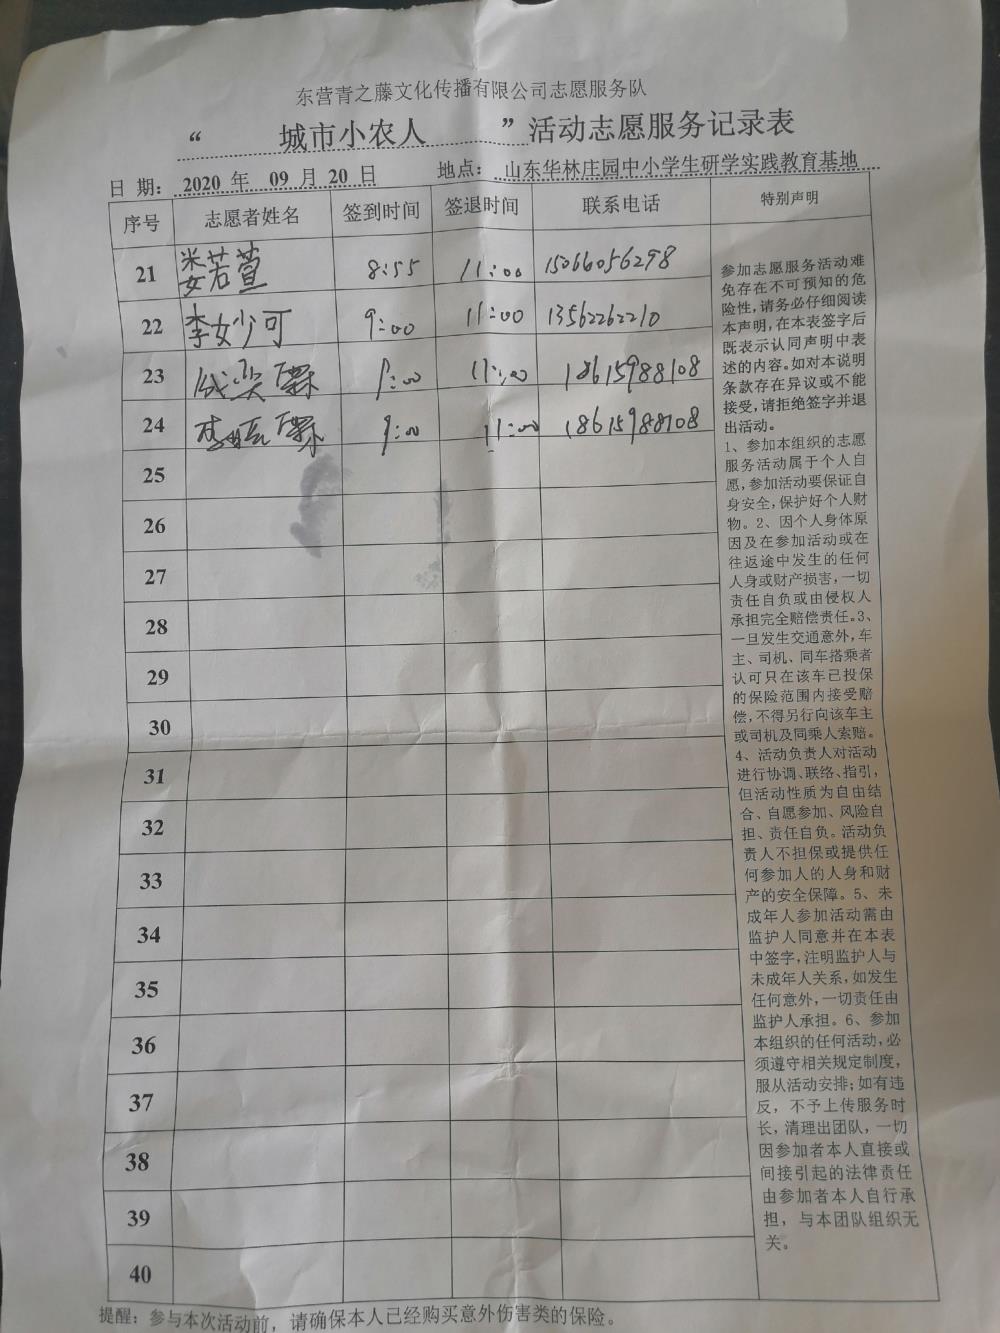 东营青之藤文化传播有限公司志愿服务队
“ 城市小农人 ”活动志愿服务记录表
日 期: 2020 年 09 月 20 日 地点: 山东华林庄园中小学生研学实践教育基地
序号 志愿者姓名 签到时间 签退时间 联系电话 特别声明
21 姜若萱 8:55 11:00 15066056298
22 李妙可 9:00 11:00 13562262210
23 9:00 11:00 18615988108
24 9:00 11:00 18615988108
25
26
27
28
29
30
31
32
33
34
35
36
37
38
39
40
参加志愿服务活动难
免存在不可预知的危
险性,请务必仔细阅读
本声明,在本表签字后
既表示认同声明中表
述的内容。如对本说明
条款存在异议或不能
接受,请拒绝签字并退
出活动。
1、参加本组织的志愿
服务活动属于个人自
愿,参加活动要保证自
身安全,保护好个人财
物。2、因个人身体原
因及在参加活动或在
往返途中发生的任何
人身或财产损害,一切
责任自负或由侵权人
承担完全赔偿责任。3、
一旦发生交通意外,车
主、司机、同车搭乘者
认可只在该车已投保
的保险范围内接受赔
偿,不得另行向该车主
或司机及同乘人索赔。
4、活动负责人对活动
进行协调、联络、指引,
但活动性质为自由结
合、自愿参加、风险自
担、责任自负。活动负
责人不担保或提供任
何参加人的人身和财
产的安全保障。5、未
成年人参加活动需由
监护人同意并在本表
中签字,注明监护人与
未成年人关系,如发生
任何意外,一切责任由
监护人承担。6、参加
本组织的任何活动,必
须遵守相关规定制度,
服从活动安排;如有违
反,不予上传服务时
长,清理出团队,一切
因参加者本人直接或
间接引起的法律责任
由参加者本人自行承
担,与本团队组织无
关。
提醒:参与本次活动前,请确保本人已经购买意外伤害类的保险。